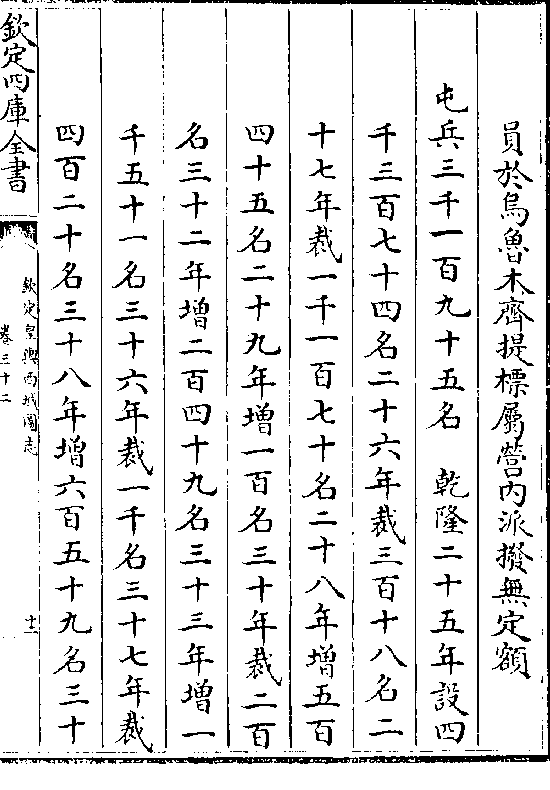 員於烏魯木齊提標屬營内派撥無定額
屯兵三千一百九十五名　乾隆二十五年設四
千三百七十四名二十六年裁三百十八名二
十七年裁一千一百七十名二十八年增五百
四十五名二十九年增一百名三十年裁二百
名三十二年增二百四十九名三十三年增一
千五十一名三十六年裁一千名三十七年裁
四百二十名三十八年增六百五十九名三十
欽定四庫全書
欽定皇輿西域圖志
卷三十二
十二